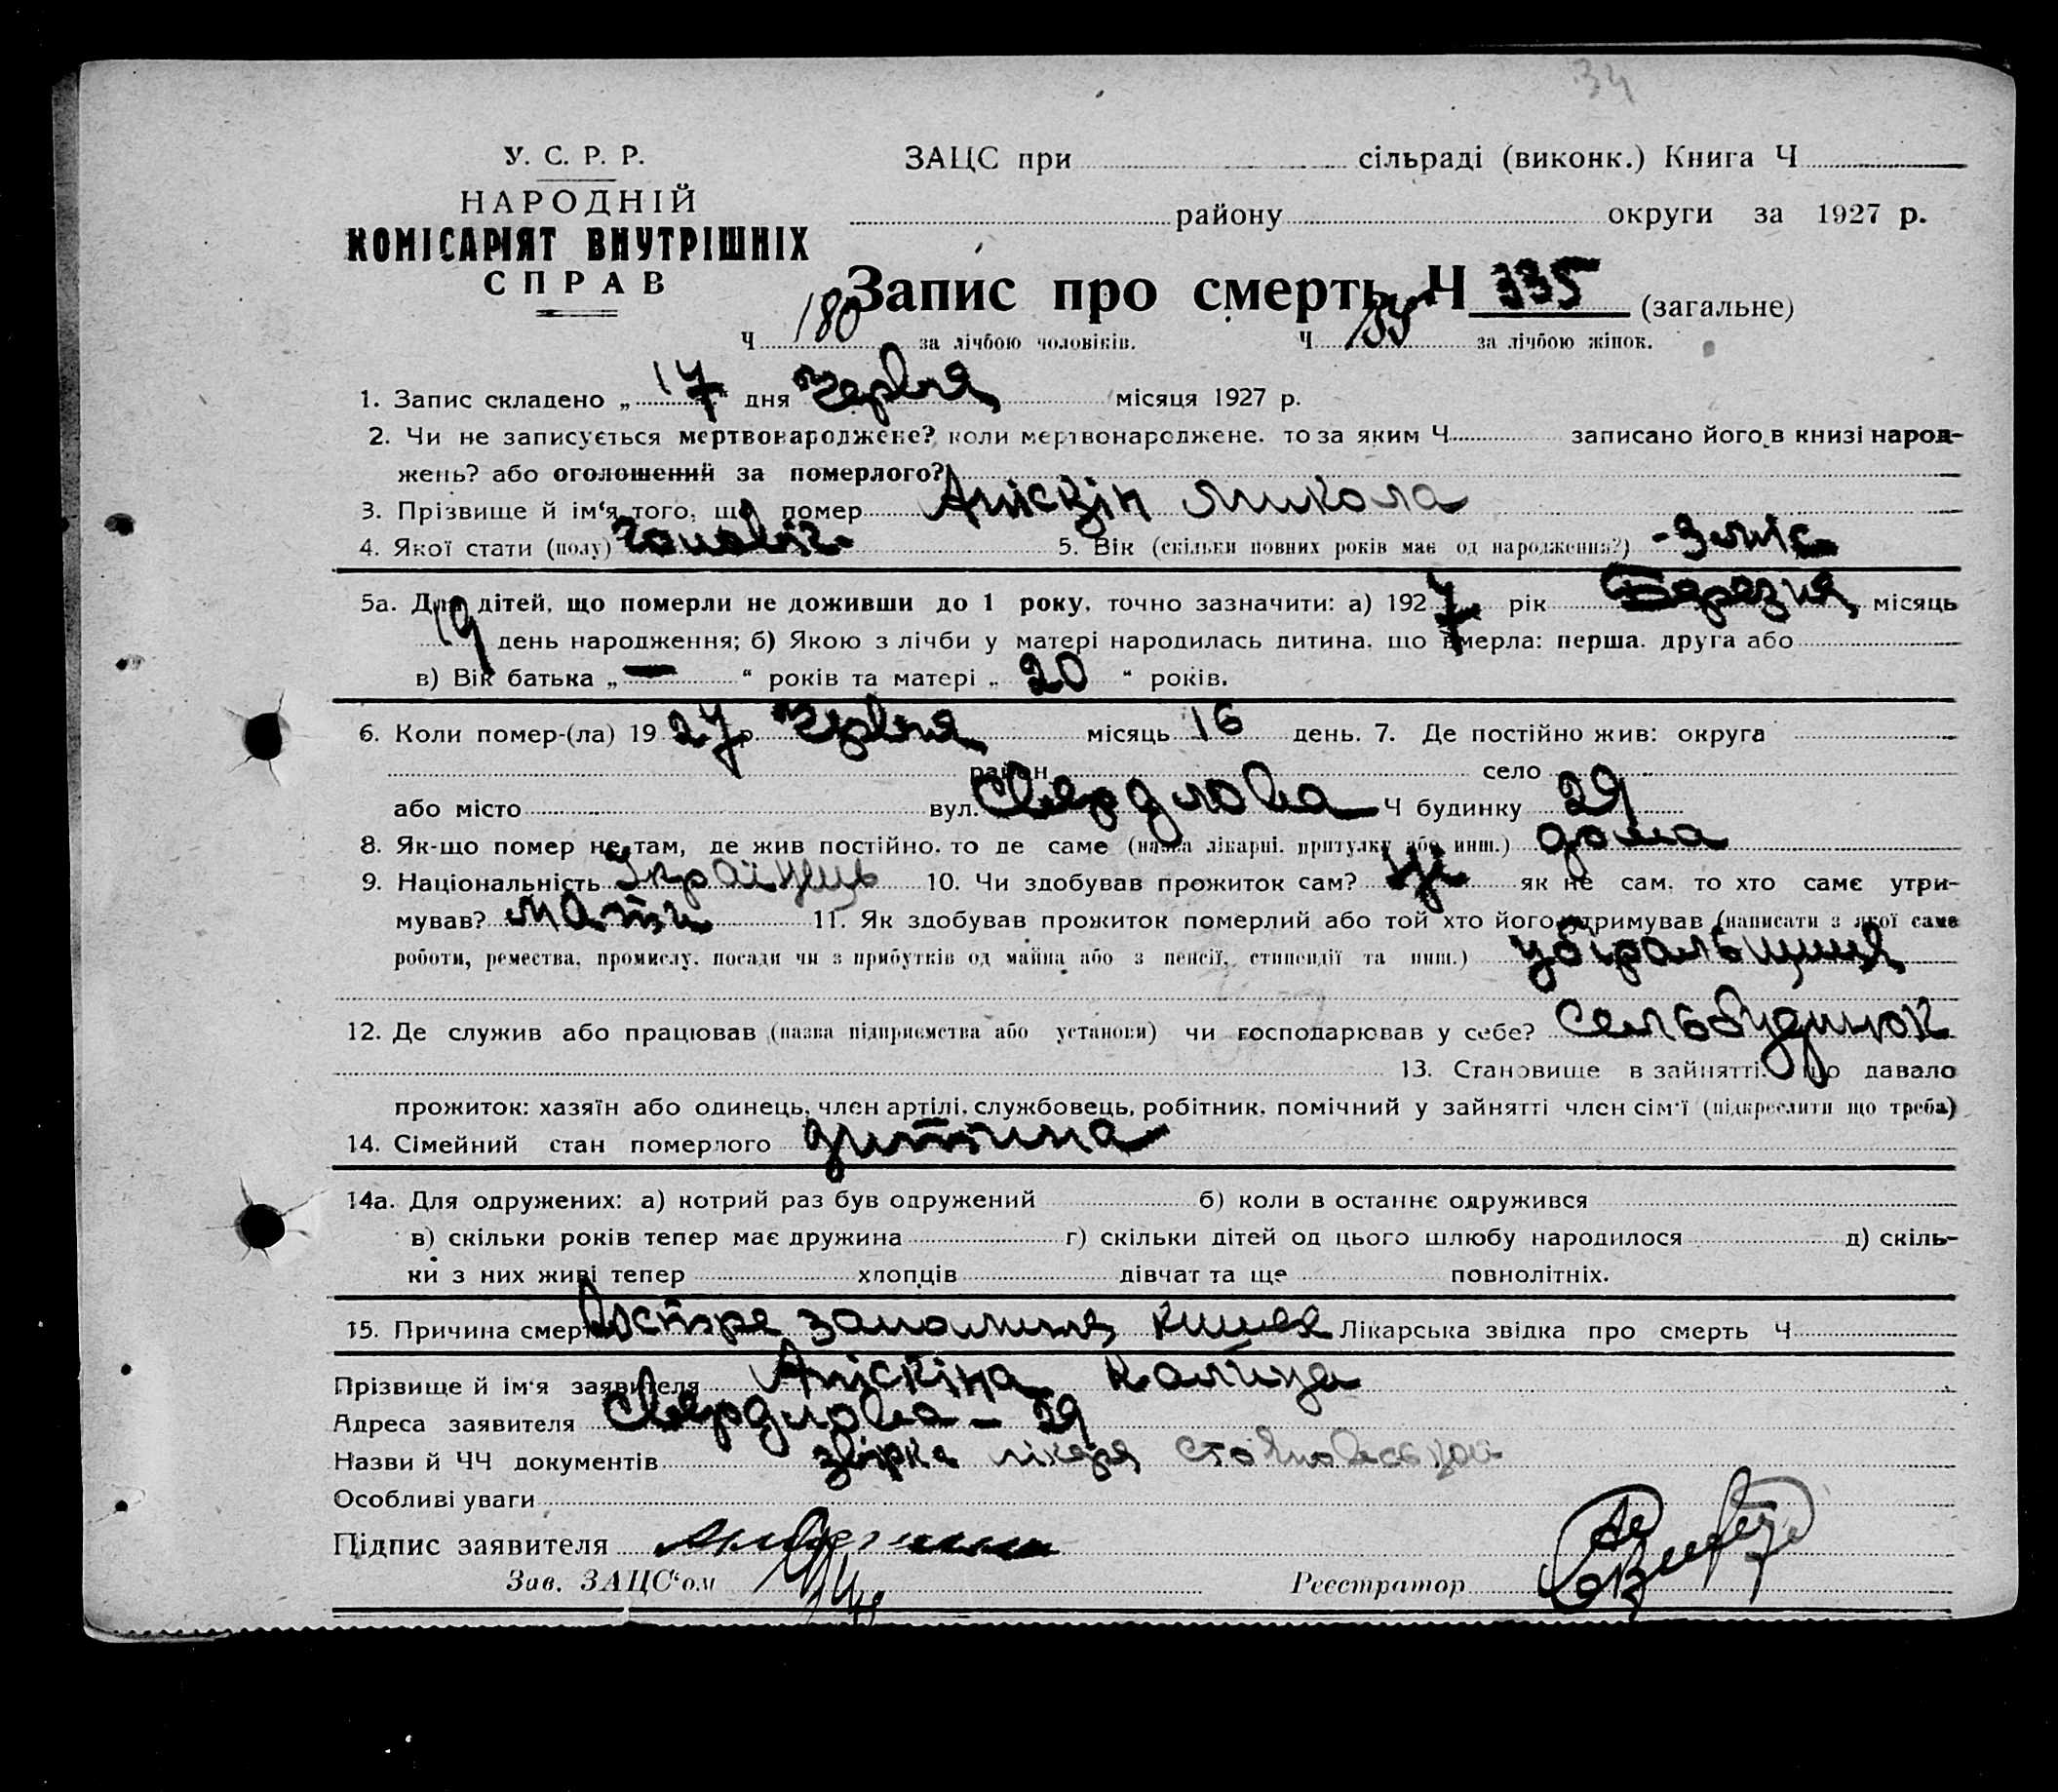 34
У. С. Р. Р.
НАРОДНІЙ
КОМІСАРІЯТ ВНУТРІШНІХ
СПРАВ
ЗАЦС при сільраді (виконк.) Книга Ч
району округи за 1927 р.
Запис про смерть Ч 335 (загальне)
Ч 180 за лічбою чоловіків. Ч 155 за лічбою жінок.
1. Запис складено „ 17 " дня Червня місяця 1927 р.
2. Чи не записується мертвонароджене? коли мертвонароджене, то за яким Ч записано його в книзі народ-
жень? або оголошений за померлого?
3. Прізвище й ім'я того, що помер Аніскін Микола
4. Якої стати (полу) чоловіч. 5. Вік (скільки повних років має од народження?) - 3 міс.
5а. Для дітей, що померли не доживши до 1 року, точно зазначити: а) 1927 рік Березня місяць
19 день народження; б) Якою з лічби у матері народилась дитина, що вмерла: перша, друга або
в) Вік батька „ — " років та матері „ 20 " років.
6. Коли помер-(ла) 1927 р. Червня місяць 16 день. 7. Де постійно жив: округа
район село
або місто вул. Свердлова Ч будинку 29
8. Як-що помер не там, де жив постійно, то де саме (назва лікарні, притулку або инш.) дома
9. Національність Українець 10. Чи здобував прожиток сам? Ні як не сам, то хто саме утри-
мував? мати 11. Як здобував прожиток померлий або той хто його утримував (написати з якої саме
роботи, ремества, промислу, посади чи з прибутків од майна або з пенсії, стипендії та инш.) убіральщиця
12. Де служив або працював (назва підприємства або установи) чи господарював у себе? Сельбудинок
13. Становище в зайнятті, що давало
прожиток: хазяїн або одинець, член артілі, службовець, робітник, помічний у зайнятті член сім'ї (підкреслити що треба)
14. Сімейний стан померлого дитина
14а. Для одружених: а) котрий раз був одружений б) коли в останнє одружився
в) скільки років тепер має дружина г) скільки дітей од цього шлюбу народилося д) скіль-
ки з них живі тепер хлопців дівчат та ще повнолітніх.
15. Причина смерти Гостре запалення кишек Лікарська звідка про смерть Ч
Прізвище й ім'я заявителя Аніскіна
Адреса заявителя Свердлова - 29
Назви й ЧЧ документів звірка лікаря
Особливі уваги
Підпис заявителя
Зав. ЗАЦС'ом Реєстратор